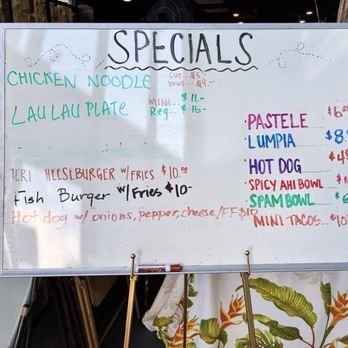 SPECIALS
CHICKEN NOODLE cup... $5.-
bowl... $9.-
LAU LAU PLATE MINI... $11.-
Reg... $16-
PASTELE
LUMPIA
HOT DOG
SPICY AHI BOWL
SPAM BOWL
MINI TACOS...
TERI HEESEBURGER w/ FRIES $10.00
Fish Burger w/ Fries $10-
Hot dog w/ onions, pepper, cheese/FF $10